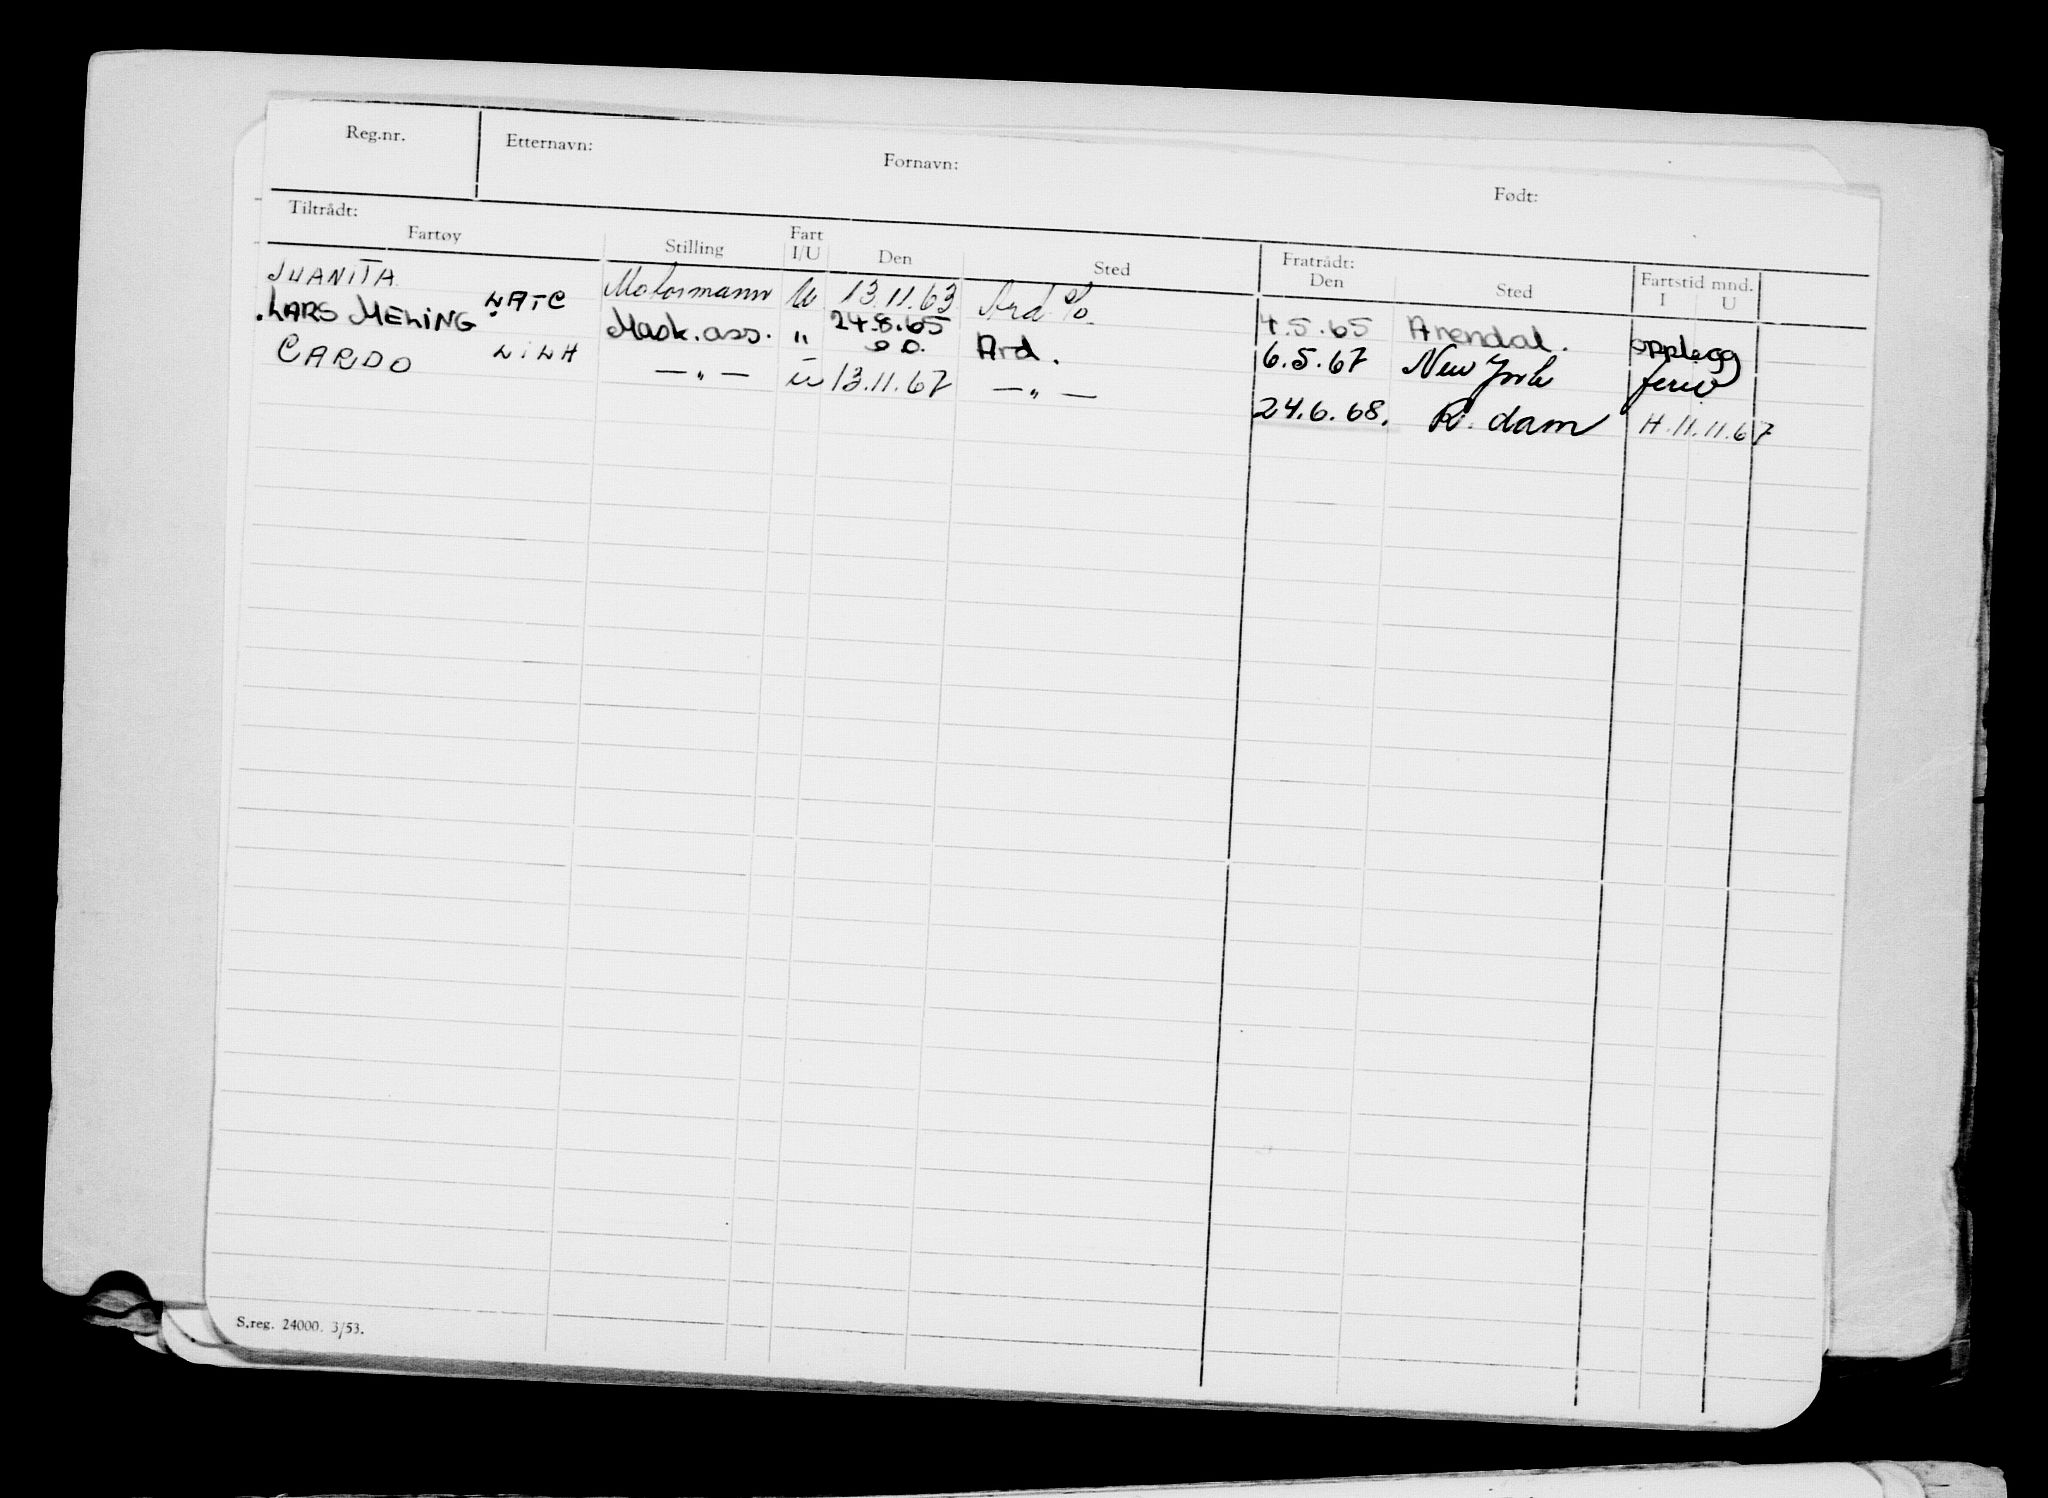 Reg.nr. Etternavn: Fornavn: Født:
Tiltrådt: Fratrådt:
Fartøy Stilling Fart I/U Den Sted Den Sted Fartstid mnd. I U
JUANITA Motormann U 13.11.63 Ard % 4.5.65 Arendal. opplegg
LARS MELING LATC Mask.ass. " 24.8.65 Ard. 6.5.67 New York ferie
CARDO LILH — " — U 13.11.67 — " — 24.6.68. R.dam H.11.11.67
S.reg. 24000. 3/53.